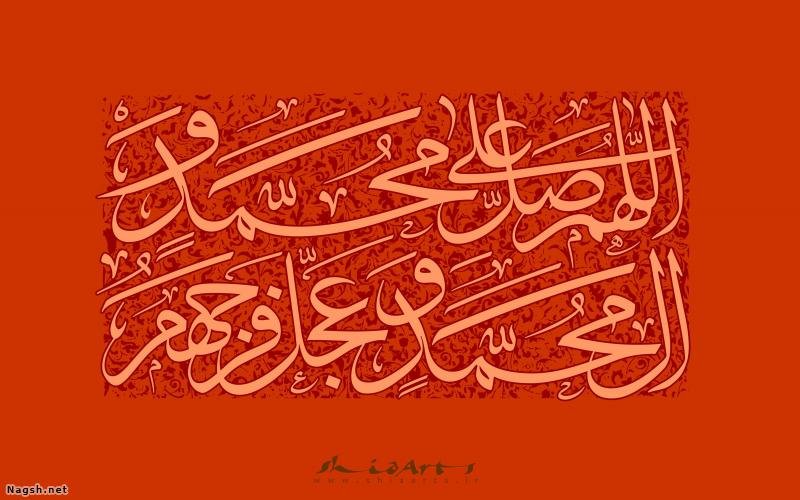 اللّهُمَّ صَلِّ عَلی مُحَمَّدٍ وَ
الِ مُحَمَّدٍ وَ عَجِّل فَرَجَهُم
ShiaArts
www.shiaarts.ir
Nagsh.net